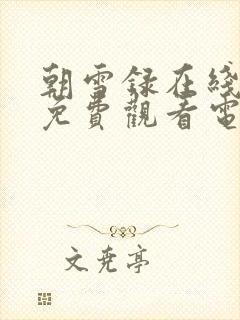 朝雪録在綫
免費觀看電
文尭亭